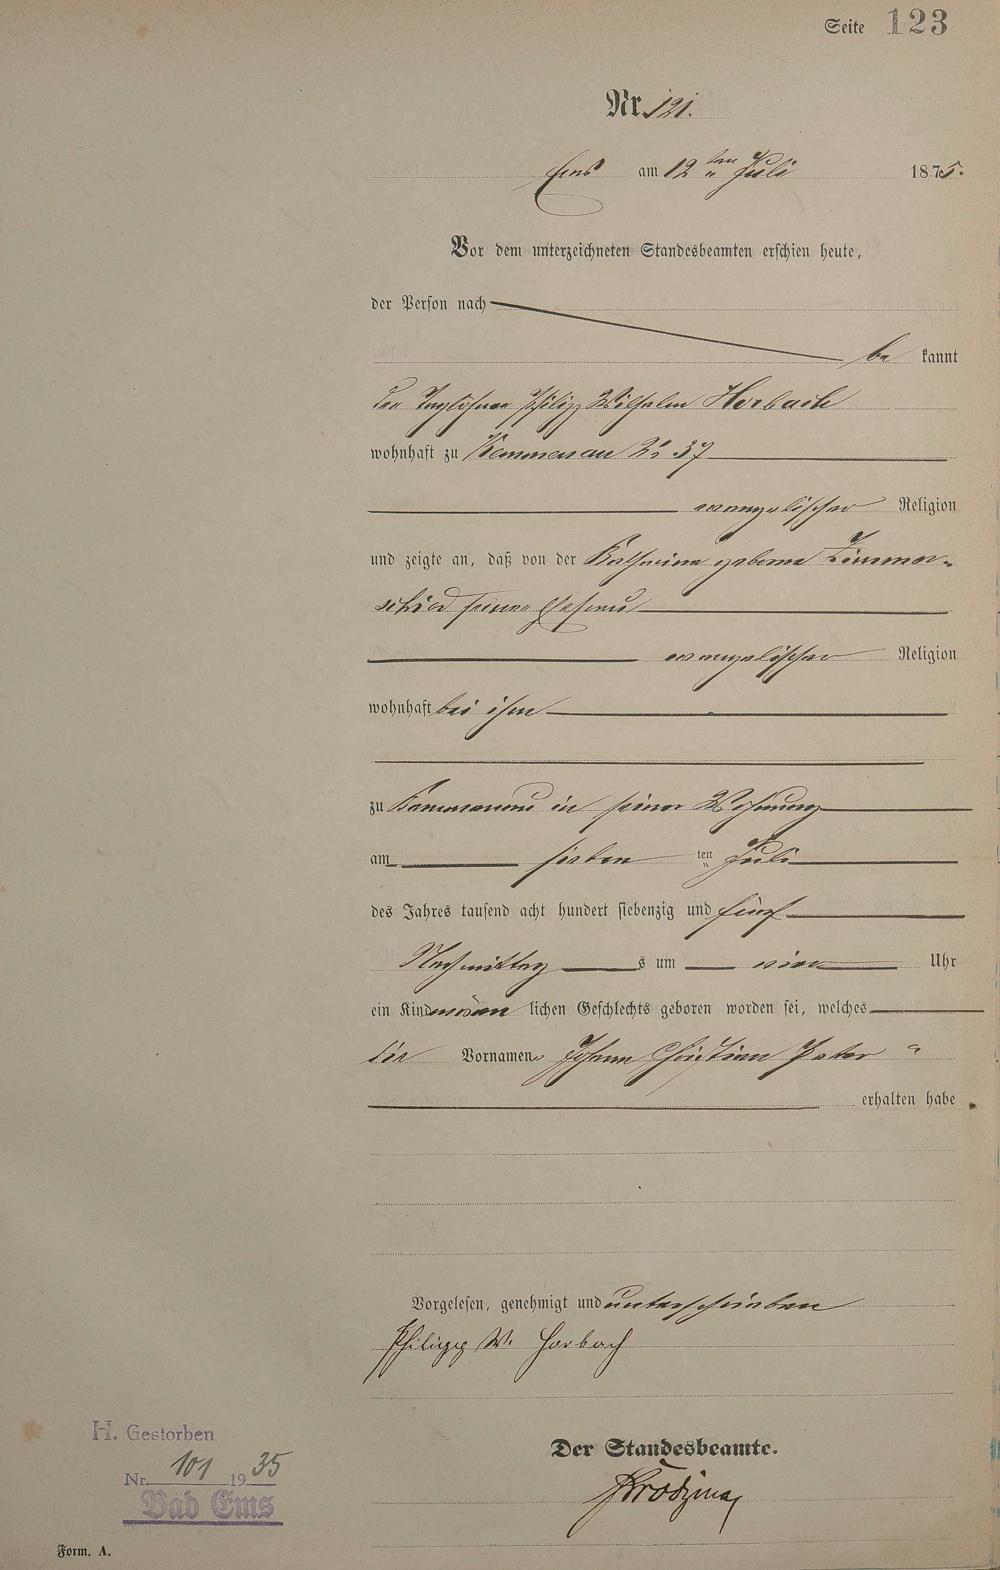 Seite 123
Nr. 121.
Ems am 12ten Juli 1875.
Vor dem unterzeichneten Standesbeamten erschien heute,
der Person nach
be kannt
der Taglöhner Philipp Wilhelm Horbach
wohnhaft zu Kemmenau No 37
evangelischer Religion
und zeigte an, daß von der Katharine geborne Zimmer-
schied seiner Ehefrau
evangelischer Religion
wohnhaft bei ihm
zu Kemmenau in seiner Wohnung
am sieben ten Juli
des Jahres tausend acht hundert siebenzig und fünf
Nachmittag s um ein Uhr
ein Kind män lichen Geschlechts geboren worden sei, welches
die Vornamen Johann Christian Peter
erhalten habe
Vorgelesen, genehmigt und unterschrieben
Philipp W. Horbach
Der Standesbeamte.
H. Gestorben
Nr. 101 1935
Bad Ems
Form. A.